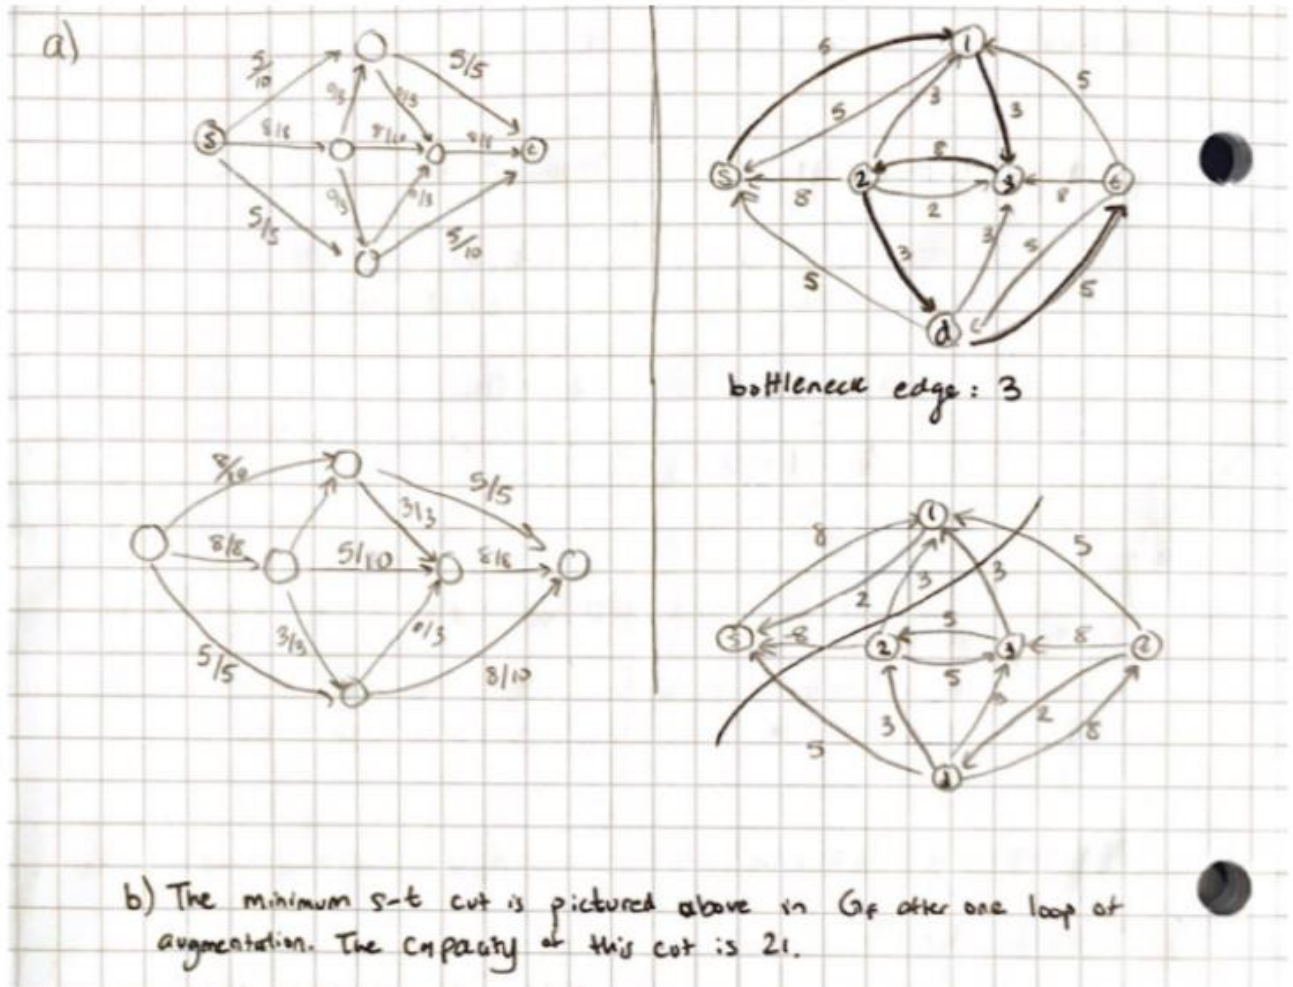 a)
5/10
5/5
0/3
0/3
S
8/8
8/10
8/8
t
0/3
0/3
5/5
5/10
5
1
5
5
3
3
8
S
2
3
t
8
2
8
3
3
5
5
5
d
bottleneck edge: 3
8/10
5/5
3/3
8/8
5/10
8/8
3/3
0/3
5/5
8/10
1
8
5
3
3
2
5
S
8
2
3
8
t
5
3
2
8
5
b) The minimum s-t cut is pictured above in Gf after one loop of
augmentation. The capacity of this cut is 21.